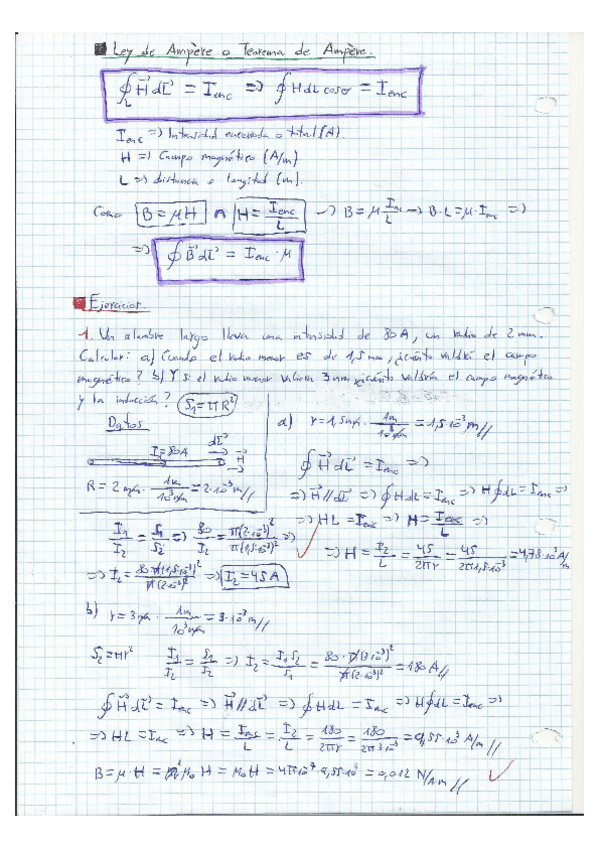 Ley de Ampère o Teorema de Ampère.
∮_L H⃗ dL⃗ = I_enc => ∮ H dL cosσ = I_enc
I_enc => Intensidad encerrada o total (A).
H => Campo magnético (A/m)
L => distancia o longitud (m).
Como B = μH ∧ H = I_enc/L -> B = μ I_enc/L -> B·L = μ·I_enc =>
=> ∮ B⃗ dL⃗ = I_enc · μ
Ejercicios.
1. Un alambre largo lleva una intensidad de 80 A, un radio de 2 mm.
Calcular: a) Cuando el radio menor es de 1,5 mm, ¿cuánto valdrá el campo
magnético? b) Y si el radio menor valiera 3 mm ¿cuánto valdría el campo magnético
y la inducción? S_1 = πR²
Datos
I_1 = 80A dL⃗ H⃗
R = 2 mm · 1m/10³mm = 2·10⁻³ m//
a) r = 1,5 mm · 1m/10³mm = 1,5·10⁻³ m//
∮ H⃗ dL⃗ = I_enc =>
=> H⃗ // dL⃗ => ∮ H dL = I_enc => H ∮ dL = I_enc =>
=> HL = I_enc => H = I_enc/L =>
I_1/I_2 = S_1/S_2 => 80/I_2 = π(2·10⁻³)²/π(1,5·10⁻³)² =>
=> H = I_2/L = 45/2πr = 45/2π1,5·10⁻³ = 4,78·10³ A/m
=> I_2 = 80·π(1,5·10⁻³)²/π(2·10⁻³)² => I_2 = 45 A
b) r = 3 mm · 1m/10³mm = 3·10⁻³ m//
S_2 = πr² I_1/I_2 = S_1/S_2 => I_2 = I_1 S_2/S_1 = 80·π(3·10⁻³)²/π(2·10⁻³)² = 180 A//
∮ H⃗ dL⃗ = I_enc => H⃗ // dL⃗ => ∮ H dL = I_enc => H ∮ dL = I_enc =>
=> HL = I_enc => H = I_enc/L = I_2/L = 180/2πr = 180/2π3·10⁻³ = 9,55·10³ A/m//
B = μ·H = μ_0 H = μ_0 H = 4π10⁻⁷·9,55·10³ = 0,012 N/A·m//